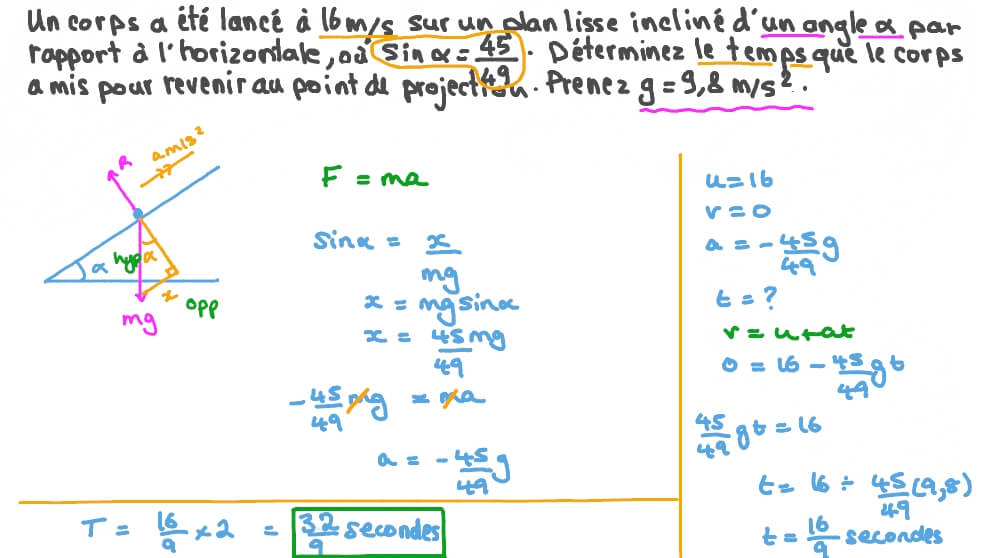 Un corps a été lancé à 16 m/s sur un plan lisse incliné d'un angle α par
rapport à l'horizontale, où sin α = 45/49. Déterminez le temps que le corps
a mis pour revenir au point de projection. Prenez g = 9,8 m/s².
a m/s²
R
α
hyp
α
x
opp
mg
F = ma
sin α = x/mg
x = mg sin α
x = 45mg/49
-45/49 mg = ma
a = -45/49 g
u = 16
v = 0
a = -45/49 g
t = ?
v = u + at
0 = 16 - 45/49 gt
45/49 gt = 16
t = 16 ÷ 45/49 (9,8)
t = 16/9 secondes
T = 16/9 × 2 = 32/9 secondes